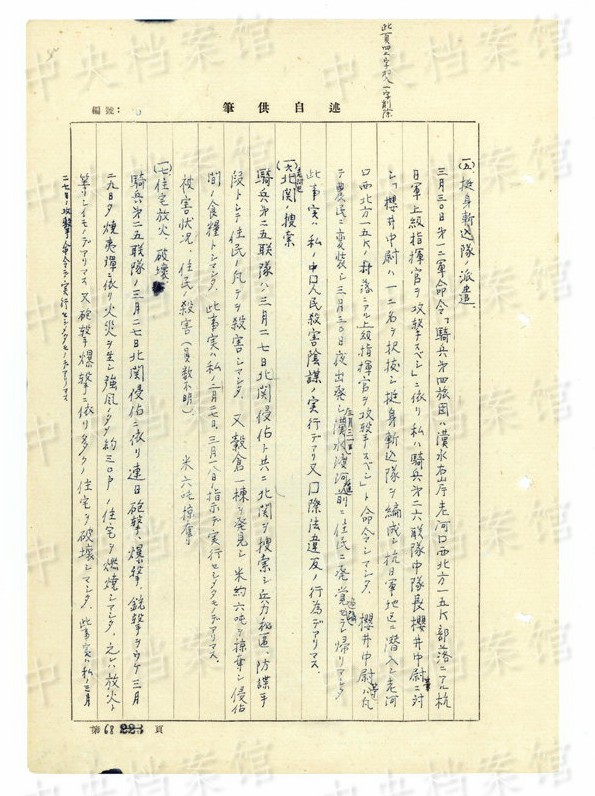 中央档案馆
此頁四十字加入一字削除
編號：
筆供自述
(一五)挺身斬込隊ノ派遣
三月三〇日第一二軍命令「騎兵第四旅団ハ漢水右岸老河口西北方一五K部落ニアル抗
日軍上級指揮官ヲ攻撃スベシ」ニ依リ私ハ騎兵第二六聯隊中隊長櫻井中尉ニ対
シ「櫻井中尉ハ一二名ヲ択抜シ挺身斬込隊ヲ編成シ抗日軍地区ニ潜入シ老河
口西北方一五Kノ村落ニアル上級指揮官ヲ攻撃スベシ」ト命令シマシタ。櫻井中尉等ハ凡
テ農民ニ変装シ三月三〇日夜出発シ漢水渡河前ニ住民ニ発覚セラレ帰リマシタ
此事実ハ私ノ中国人民殺害陰謀ノ実行デアリ又国際法違反ノ行為デアリマス。
(一六)老河口北関ノ捜索
騎兵第二五聯隊ハ三月二七日北関侵佔ト共ニ北関ヲ捜索シ兵力秘匿、防諜手
段トシテ住民ノ凡テヲ殺害シマシタ。又穀倉一棟ヲ発見シ米約六吨ヲ掠奪シ侵佔
間ノ食糧トシマシタ。此事実ハ私ノ二月二七日、三月一八日ノ指示デ実行セシメタモノデアリマス。
被害状况、住民ノ殺害(員数不明) 米六吨掠奪
(一七)住宅放火、破壊
騎兵第二五聯隊ノ三月二七日北関侵佔ニ依リ連日砲撃、爆撃、銃撃ヲウケ三月
二九日夕焼夷弾ニ依リ火災ヲ生シ強風ノタメ約三〇戸ノ住宅ヲ燃焼シマシタ。之ハ放火ト
等シイモノデアリマス又砲撃爆撃ニ依リ多クノ住宅ヲ破壊シマシタ。此事実ハ私ノ三月
二七日ノ攻撃命令デ実行セシメタモノデアリマス
第68 223 頁